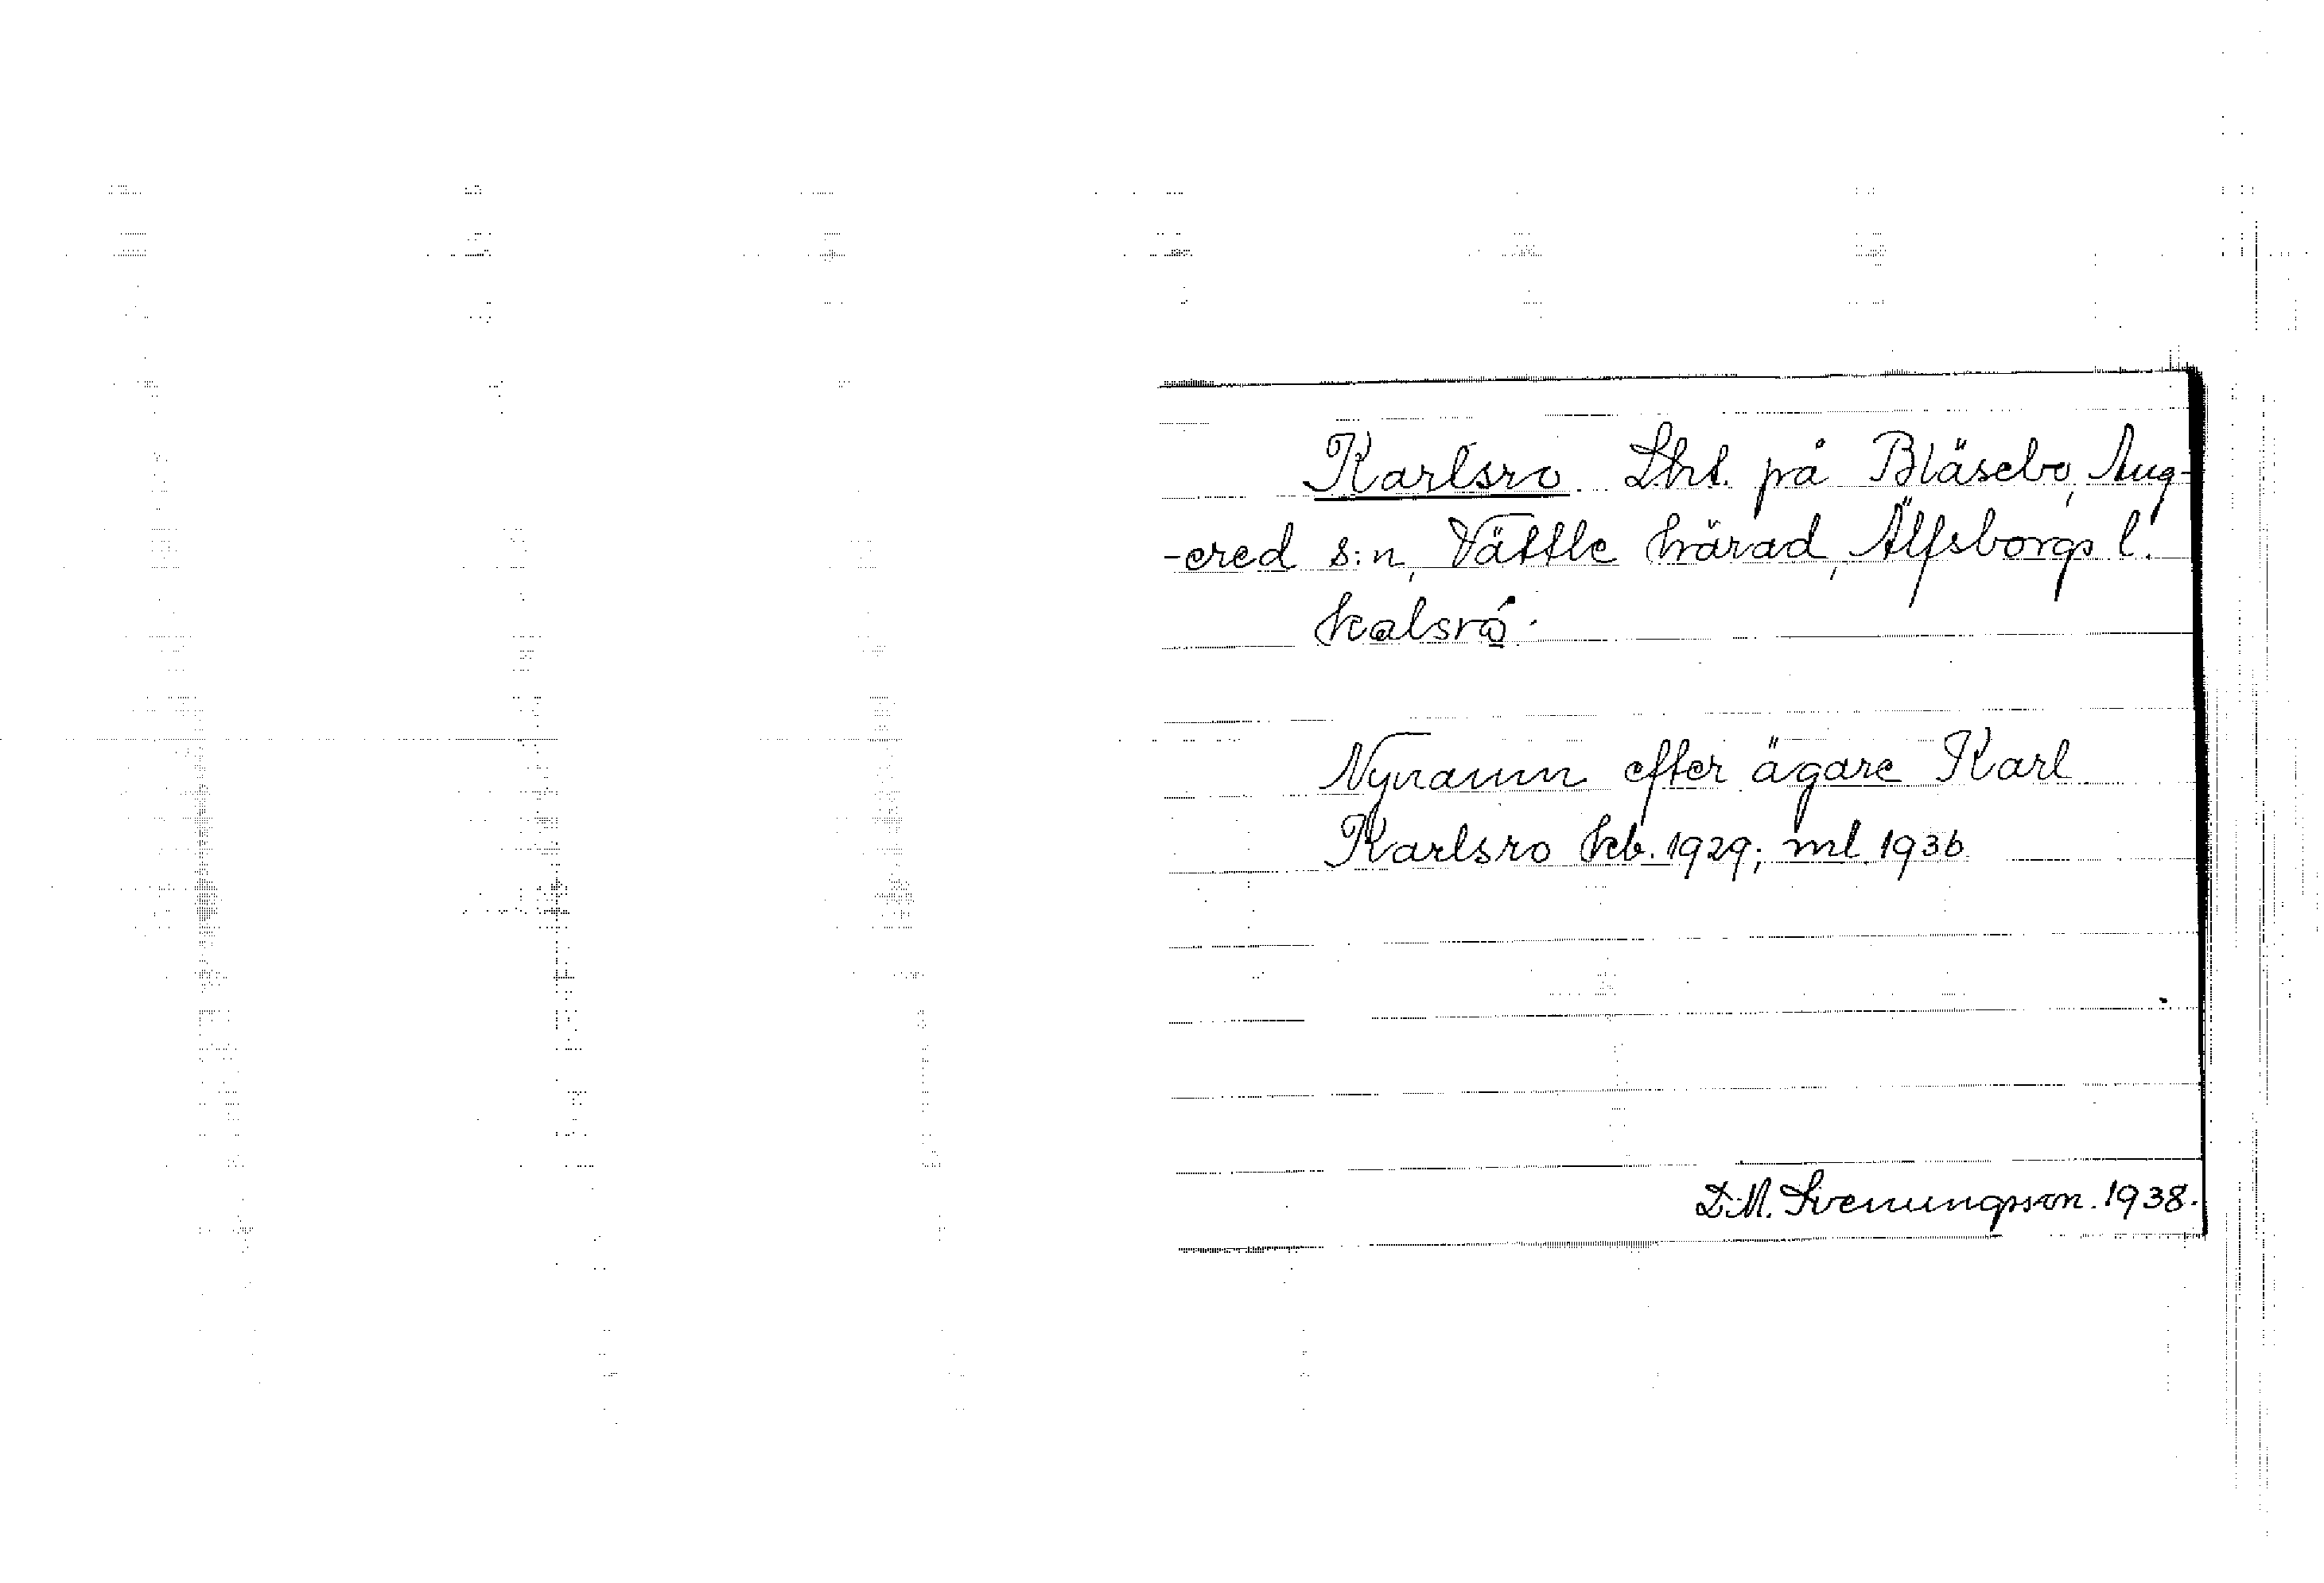 Karlsro Lht. på Bläsebo, Ang-
-ered s:n, Vättle härad, Älfsborgs l.
kalsró.
Nynamn efter ägare Karl
Karlsro kb. 1929; ml. 1936
D.M. Svenungsson. 1938.